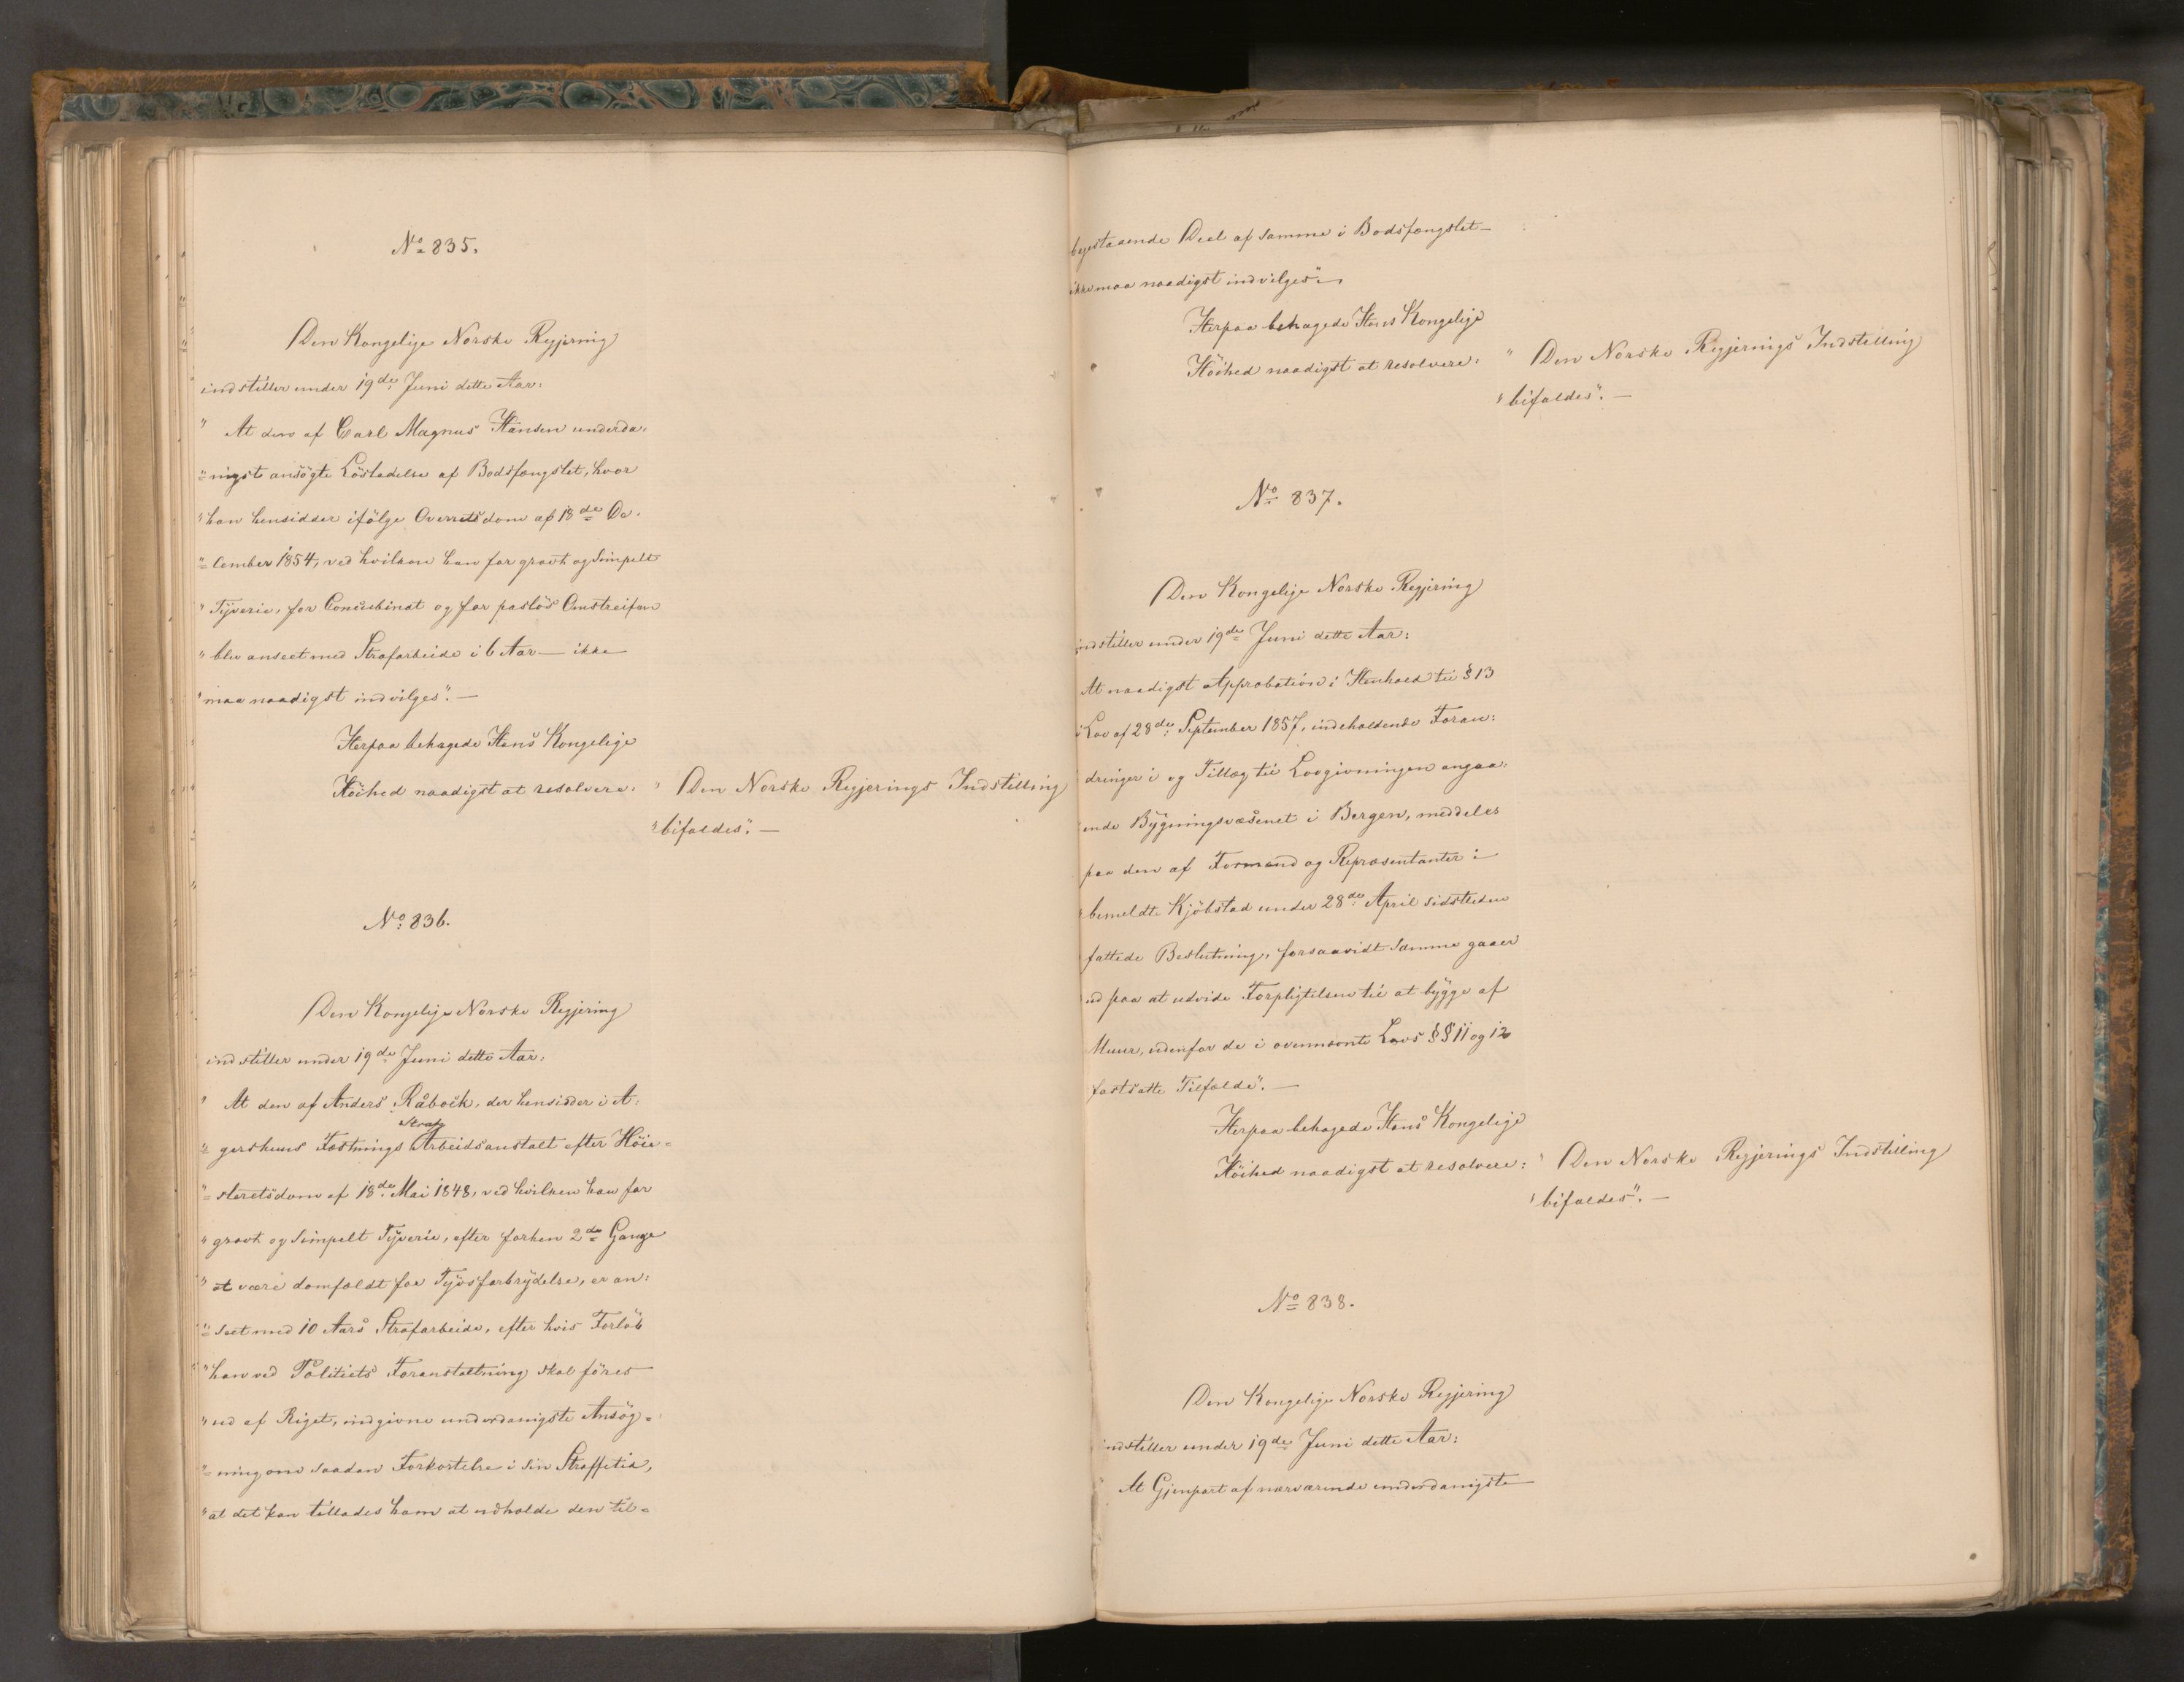 No 835.
Den Kongelige Norske Regjering
indstiller under 19de Juni dette Aar:
" At den af Carl Magnus Hansen underda-
"=nigst ansögte Lösladelse af Bodsfængslet, hvor
"han hensidder ifölge Overretsdom af 18de De-
"=cember 1854, ved hvilken han for grovt og simpelt
"Tyverie, for Concubinat og for paslös Omstreifen
"blev anseet med Strafarbeide i 6 Aar — ikke
"maa naadigst indvilges". —
Herpaa behagede Hans Kongelige
Höihed naadigst at resolvere: " Den Norske Regjerings Indstilling
"bifaldes". —
No 836.
Den Kongelige Norske Regjering
indstiller under 19de Juni dette Aar:
" At den af Anders Råbock, der hensidder i A-
Straf
"=gershuus Fæstnings Arbeidsanstalt efter Höie=
"=steretsdom af 18de Mai 1848, ved hvilken han for
"grovt og simpelt Tyverie, efter forhen 2de Gange
"at være domfældt for Tyvsforbrydelse, er an-
"=seet med 10 Aars Strafarbeide, efter hvis Forlöb
"han ved Politiets Foranstaltning skal föres
"ud af Riget, indgivne underdanigste Ansög=
"=ning om saadan Forkortelse i sin Straffetid,
"at det kan tillades ham at udholde den til=
bagestaaende Deel af samme i Bodsfængslet —
ikke maa naadigst indvilges". —
Herpaa behagede Hans Kongelige
Höihed naadigst at resolvere: " Den Norske Regjerings Indstilling
"bifaldes". —
No 837.
Den Kongelige Norske Regjering
indstiller under 19de Juni dette Aar:
At naadigst Approbation i Henhold til § 13
i Lov af 28de September 1857, indeholdende Foran-
dringer i og Tillæg til Lovgivningen angaa-
ende Bygningsvæsenet i Bergen, meddeles
paa den af Formænd og Repræsentanter i
bemeldte Kjöbstad under 28de April sidstleden
fattede Beslutning, forsaavidt samme gaaer
ud paa at udvide Forpligtelsen til at bygge af
Muur, udenfor de i ovennævnte Lovs §§ 11 og 12
fastsatte Tilfælde". —
Herpaa behagede Hans Kongelige
Höihed naadigst at resolvere: " Den Norske Regjerings Indstilling
"bifaldes". —
No 838.
Den Kongelige Norske Regjering
indstiller under 19de Juni dette Aar:
At Gjenpart af nærværende underdanigste